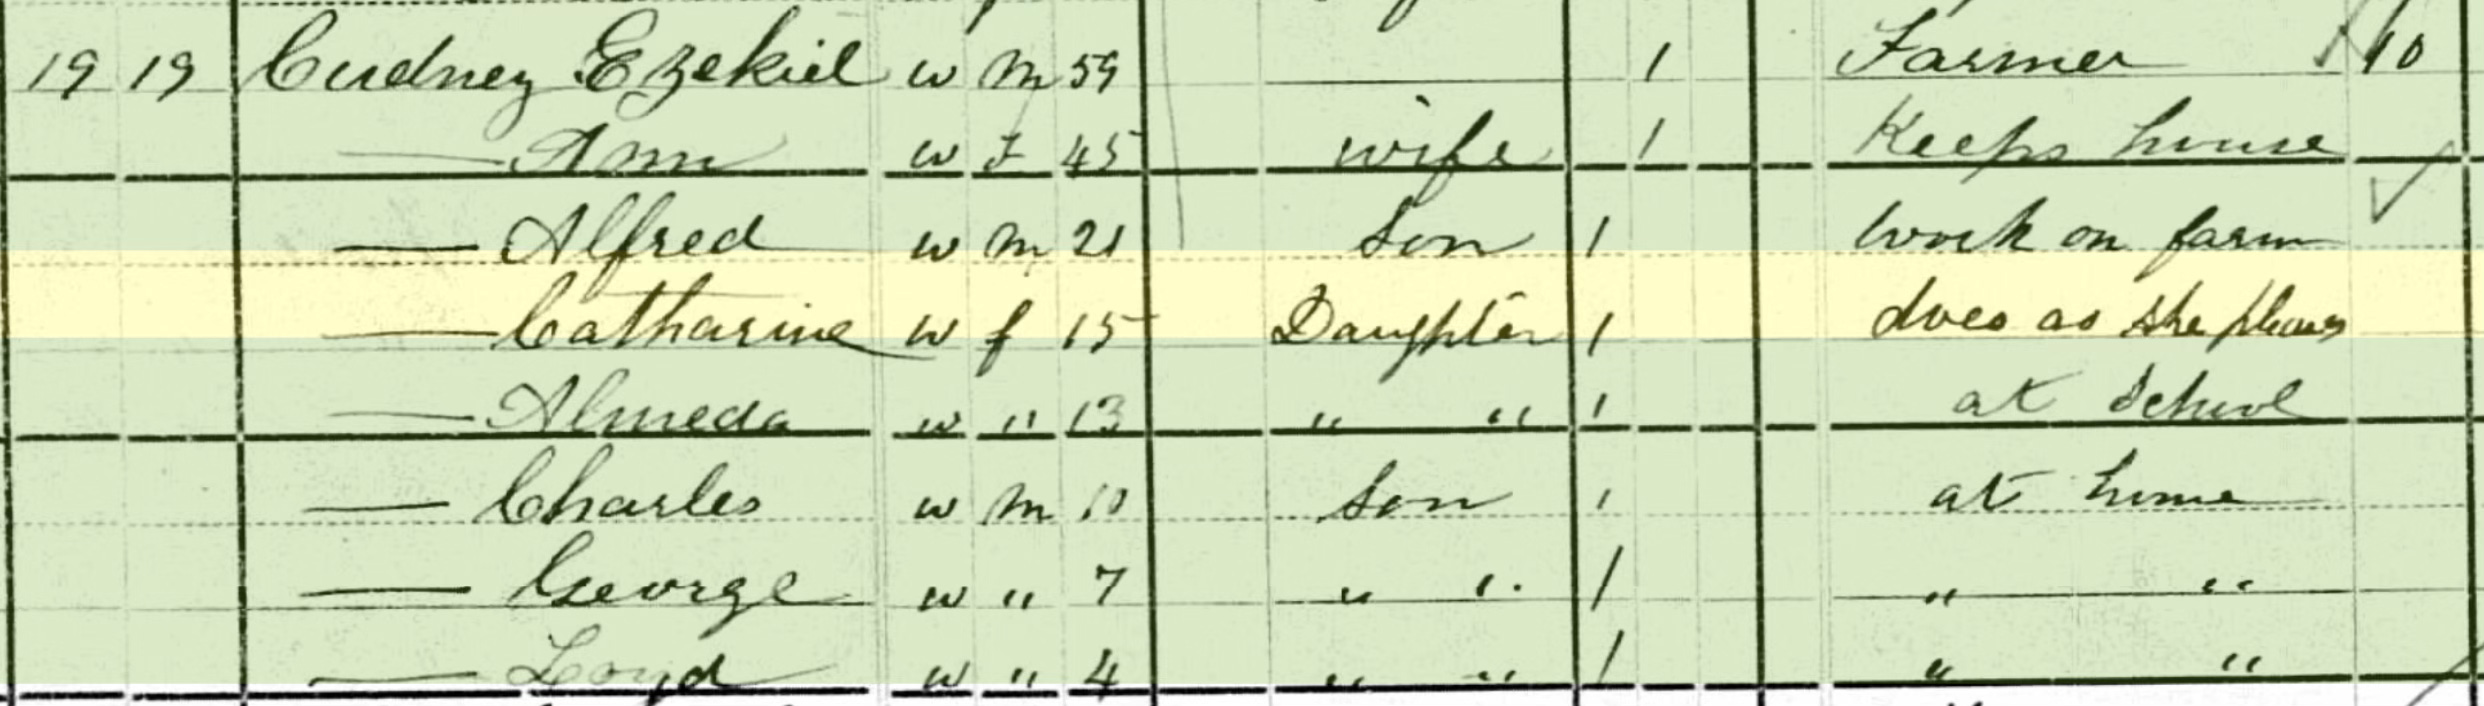 19 19 Cudney Ezekiel w m 59 1 Farmer 10
Ann w F 45 wife 1 Keeps house
Alfred w m 21 Son 1 work on farm
Catharine w f 15 Daughter 1 does as she pleases
Almeda w " 13 " " 1 at School
Charles w m 10 Son 1 at home
George w " 7 " " 1 " "
Loyd w " 4 " " 1 " "